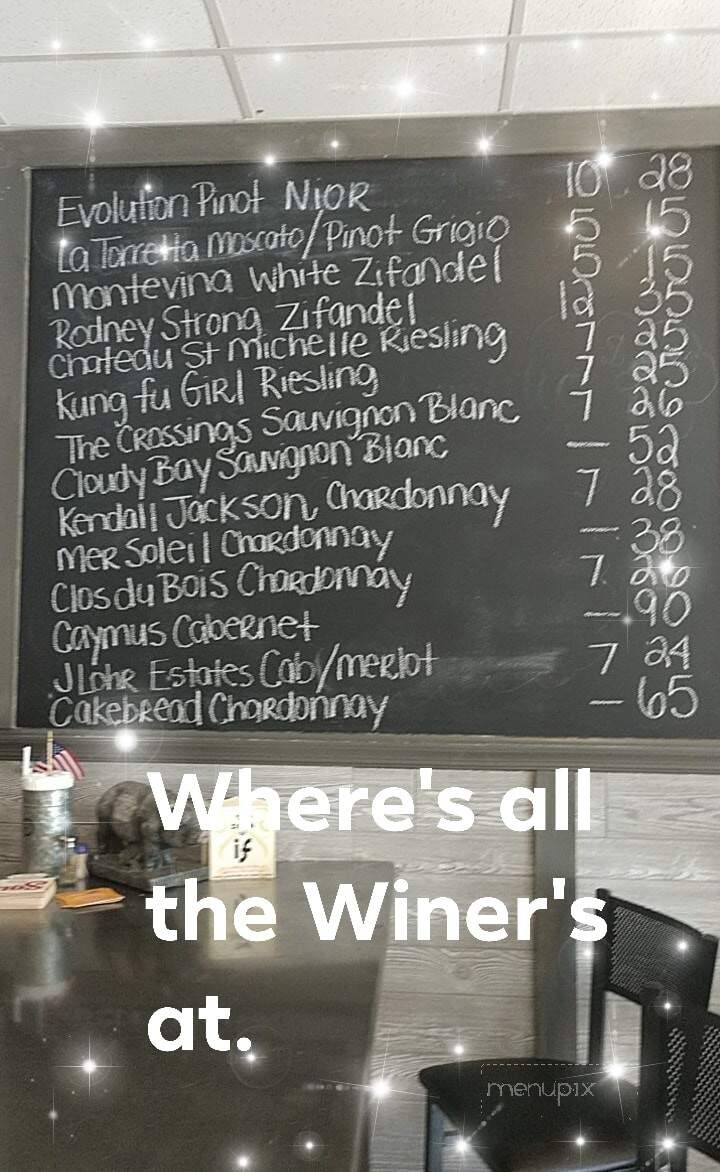 Evolution Pinot NIOR 10 28
La Torretta moscato/Pinot Grigio 5 15
montevina white Zifandel 5 15
Rodney Strong Zifandel 12 35
Chateau St michelle Riesling 7 25
Kung fu GIRl Riesling 7 25
The CRossings Sauvignon Blanc 7 26
Cloudy Bay Sauvignon Blanc — 52
Kendall Jackson Chardonnay 7 28
meR Soleil Chardonnay — 38
Clos du Bois Chardonnay 7 26
Caymus Cabernet — 90
J Lohr Estates Cab/merlot 7 24
Cakebread Chardonnay — 65
Where's all
if
the Winer's
at.
menupix